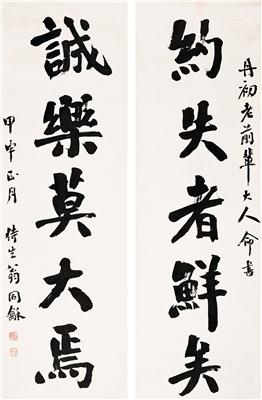 丹初老前輩大人命書
約失者鮮矣
誠樂莫大焉
甲申正月 侍生翁同龢